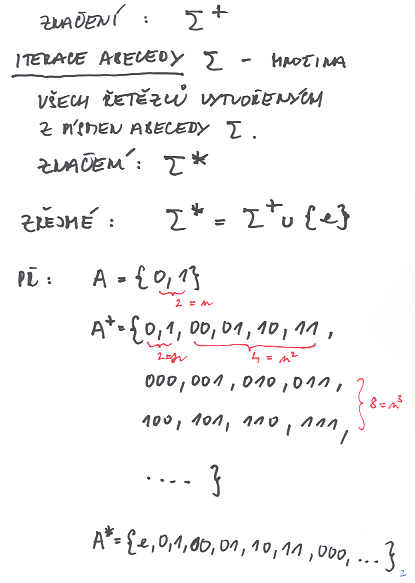 ZNAČENÍ : Σ⁺
ITERACE ABECEDY Σ – MNOŽINA
VŠECH ŘETĚZCŮ VYTVOŘENÝCH
Z PÍSMEN ABECEDY Σ.
ZNAČENÍ : Σ*
ZŘEJMÉ : Σ* = Σ⁺ ∪ {e}
PŘ : A = {0,1}
2 = n
A⁺ = {0,1, 00,01,10,11,
2=n 4 = n²
000, 001, 010, 011,
8 = n³
100, 101, 110, 111,
.... }
A* = {e,0,1,00,01,10,11,000,...}
2